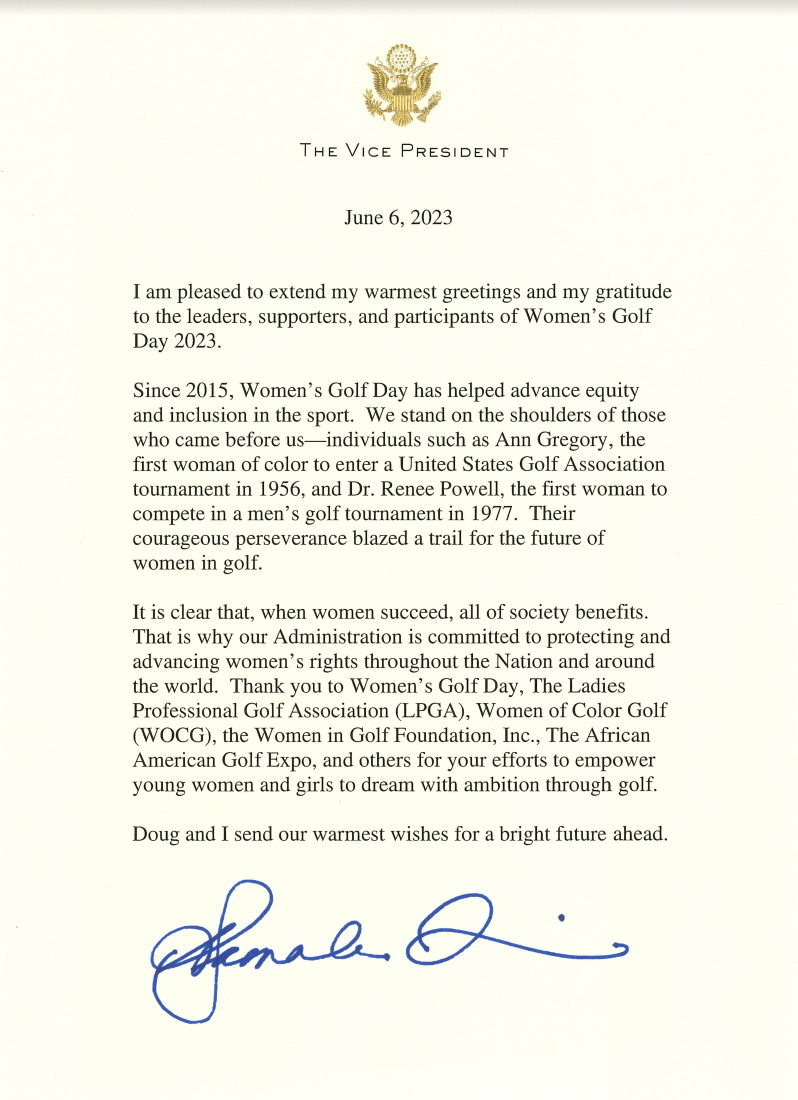 THE VICE PRESIDENT
June 6, 2023
I am pleased to extend my warmest greetings and my gratitude
to the leaders, supporters, and participants of Women’s Golf
Day 2023.
Since 2015, Women’s Golf Day has helped advance equity
and inclusion in the sport.  We stand on the shoulders of those
who came before us—individuals such as Ann Gregory, the
first woman of color to enter a United States Golf Association
tournament in 1956, and Dr. Renee Powell, the first woman to
compete in a men’s golf tournament in 1977.  Their
courageous perseverance blazed a trail for the future of
women in golf.
It is clear that, when women succeed, all of society benefits.
That is why our Administration is committed to protecting and
advancing women’s rights throughout the Nation and around
the world.  Thank you to Women’s Golf Day, The Ladies
Professional Golf Association (LPGA), Women of Color Golf
(WOCG), the Women in Golf Foundation, Inc., The African
American Golf Expo, and others for your efforts to empower
young women and girls to dream with ambition through golf.
Doug and I send our warmest wishes for a bright future ahead.